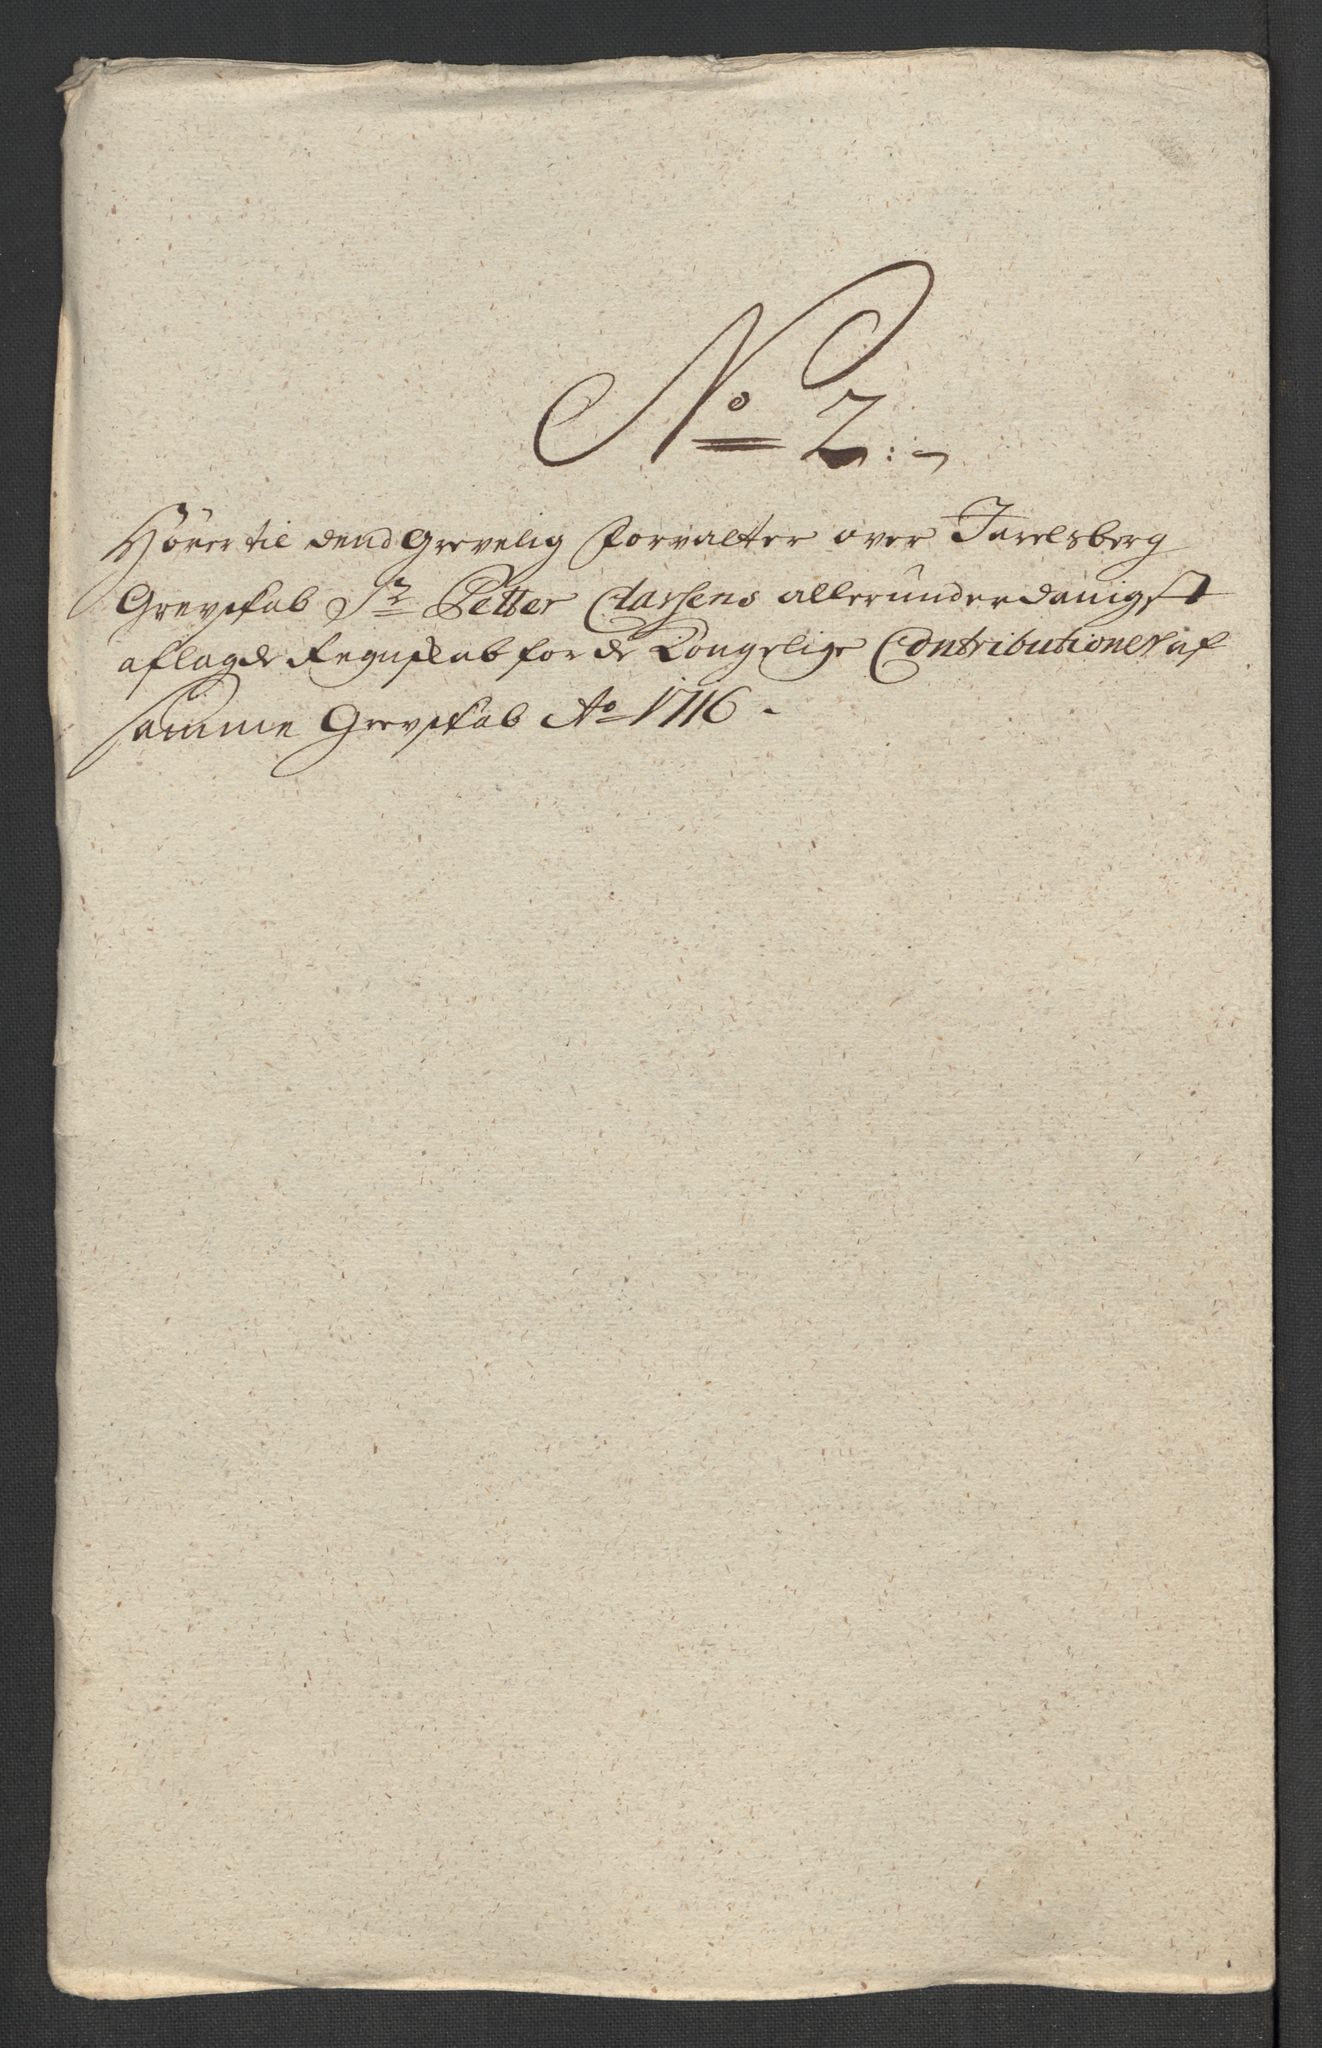 No 2:
Hører til dend Grevelig Forvalter over Jarelsberg
Grevskab Sr Petter Clausens allerunderdanigst
aflagde Regnskab for de Kongelige Contributioner af
samme Grevskab Ao 1716 -